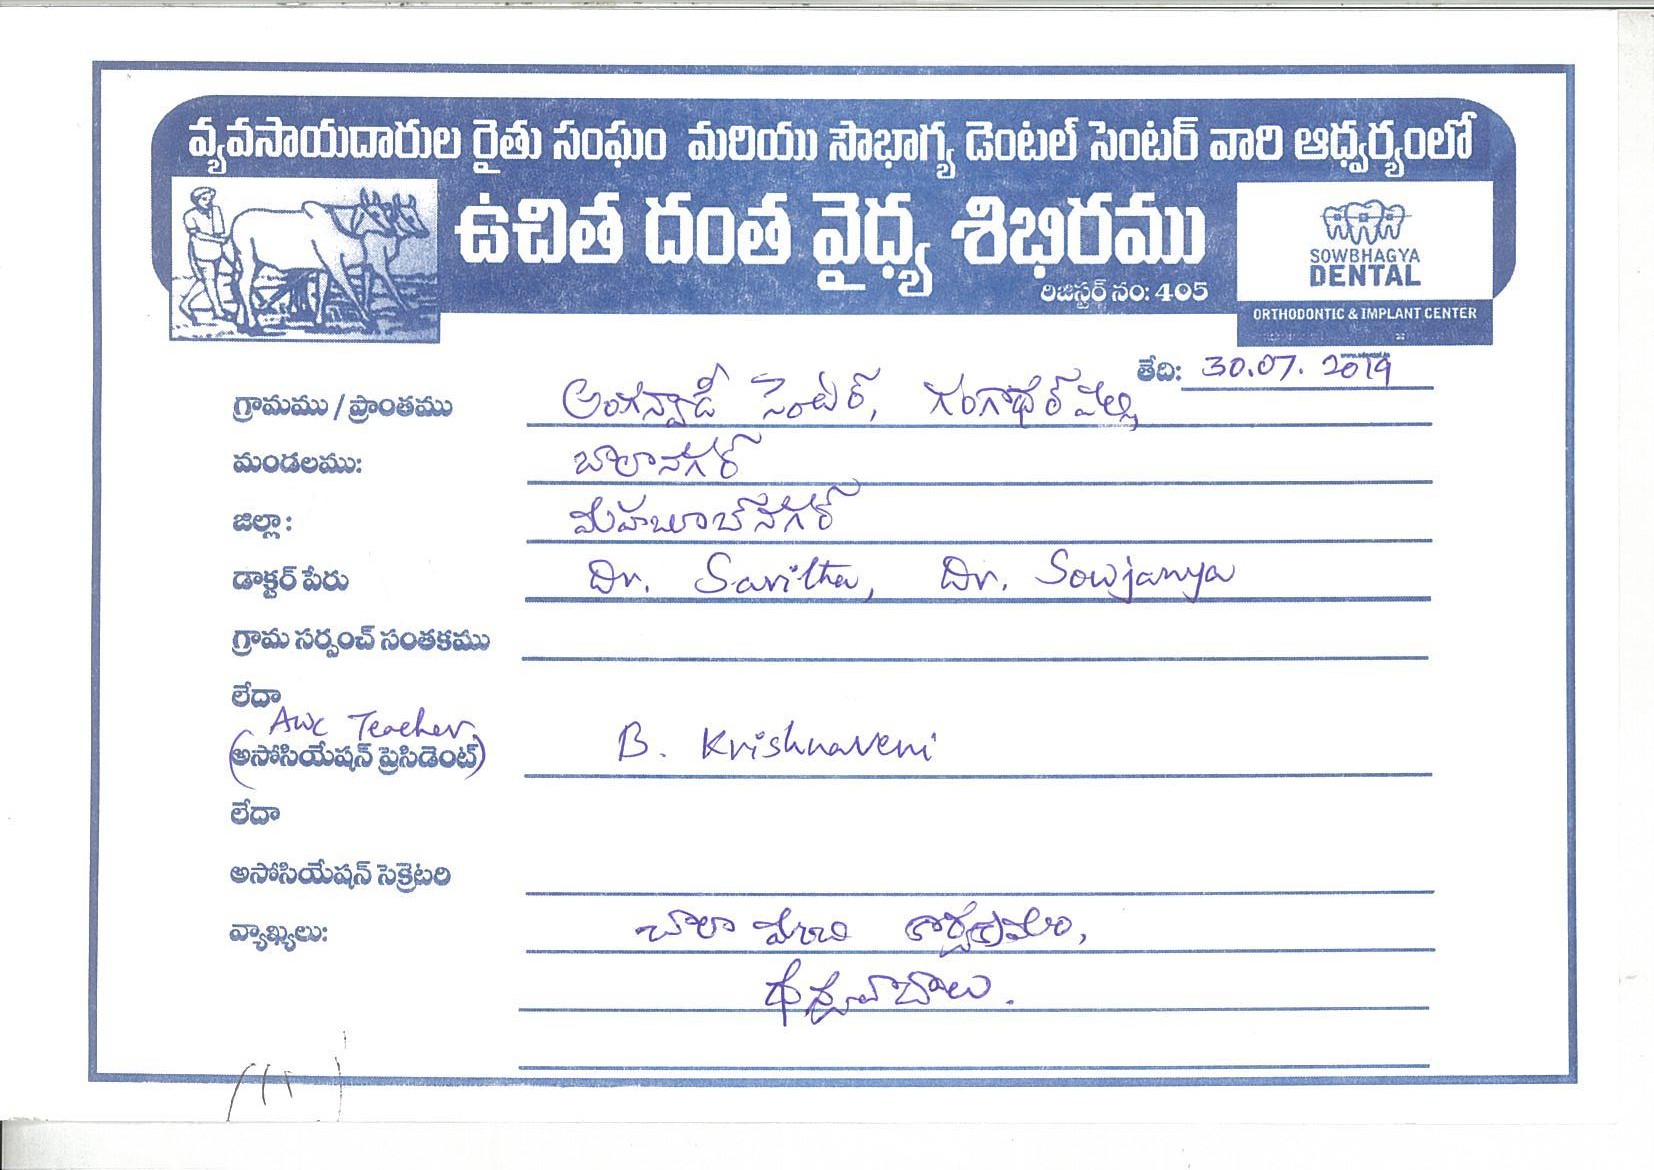 వ్యవసాయదారుల రైతు సంఘం మరియు సౌభాగ్య డెంటల్ సెంటర్ వారి ఆధ్వర్యంలో
ఉచిత దంత వైద్య శిబిరము
రిజిస్టర్ నం: 405
SOWBHAGYA
DENTAL
ORTHODONTIC & IMPLANT CENTER
తేది: 30.07.2019
గ్రామము / ప్రాంతము అంగన్వాడీ సెంటర్,
మండలము: బాలానగర్
జిల్లా: మహబూబ్‌నగర్
డాక్టర్ పేరు Dr. Savitha, Dr. Sowjanya
గ్రామ సర్పంచ్ సంతకము
లేదా
AWC Teacher
(అసోసియేషన్ ప్రెసిడెంట్) B. Krishnaveni
లేదా
అసోసియేషన్ సెక్రెటరి
వ్యాఖ్యలు: చాలా మంచి కార్యక్రమం,
ధన్యవాదాలు.